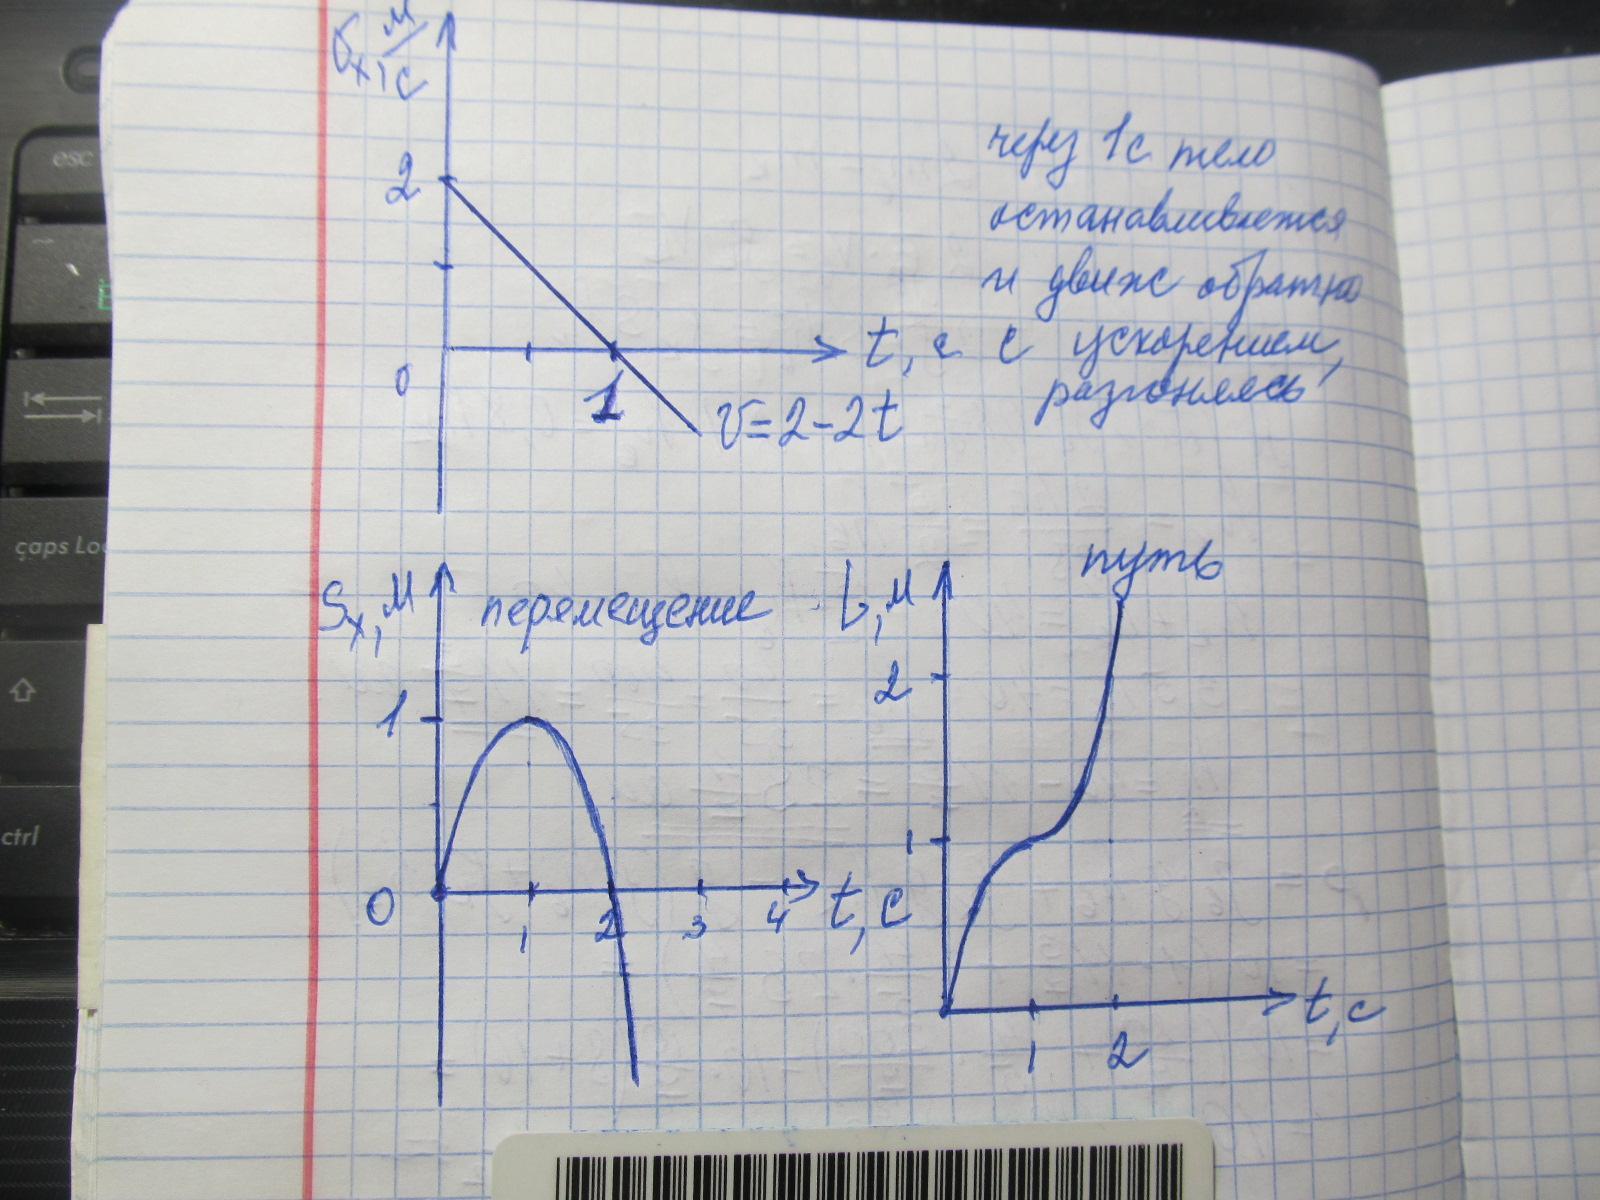 esc
caps Loc
ctrl
υx, м/с
2
0
1
t, с
υ=2-2t
через 1с тело
останавливается
и движ обратно
с ускорением,
разгоняясь
Sx, м
перемещение
1
0
1 2 3 4 t, с
L, м
путь
2
1
1 2
t, с